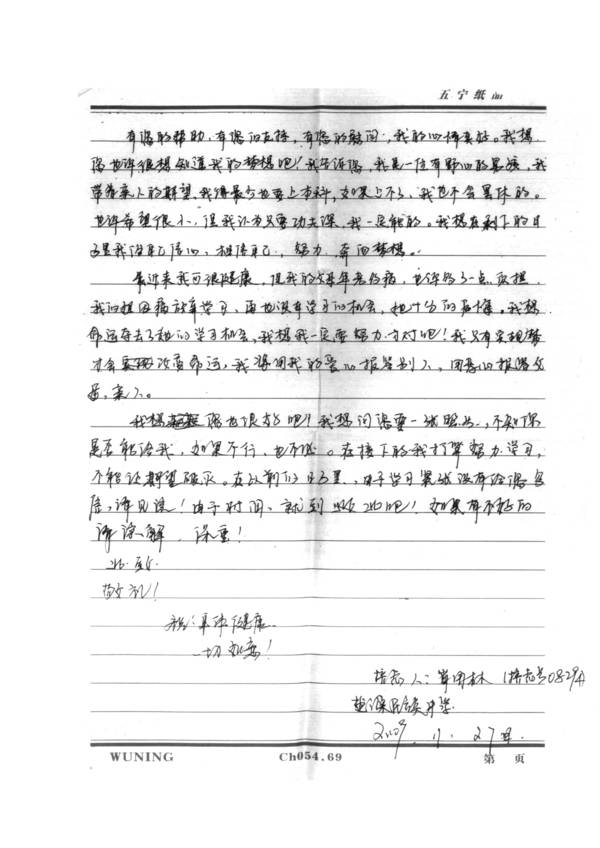 五宁纸品
有您的帮助,有您的支持,有您的慰问,我的心情真好。我想
您也许很想知道我的梦想吧!我告诉您,我是一位有野心的男孩,我
带着亲人的期望,我得最少也要上本科,如果上不了,我也不会罢休的。
也许希望很小,但我认为只要功夫深,我一定能的。我想在剩下的日
子里我没自信心,相信自己,努力,奔向梦想。
最近来我可很健康,但我的父母年老伤病,也许多了一点负担
我因病放弃学习,再也没有学习的机会,他十分的后悔。我想
命运夺去了他的学习机会,我想我一定要努力才对吧!我只有实现梦
才会改变命运,我得用我的爱心报答别人,用忠心报答父
母,亲人。
我想您也很好吧!我想问您要一张照片,不知您
是否能给我,如果不行,也不怪。在接下的我打算努力学习,
不能让期望破灭。在以前的日子里,由于学习紧张没有给您写
信,请见谅!由于时间,就到此吧!如果有不好的
请谅解,保重!
此致
敬礼!
祝:身体健康
一切如意!
林
民族中学
2009.11.27
WUNING
Ch054.69
第 页